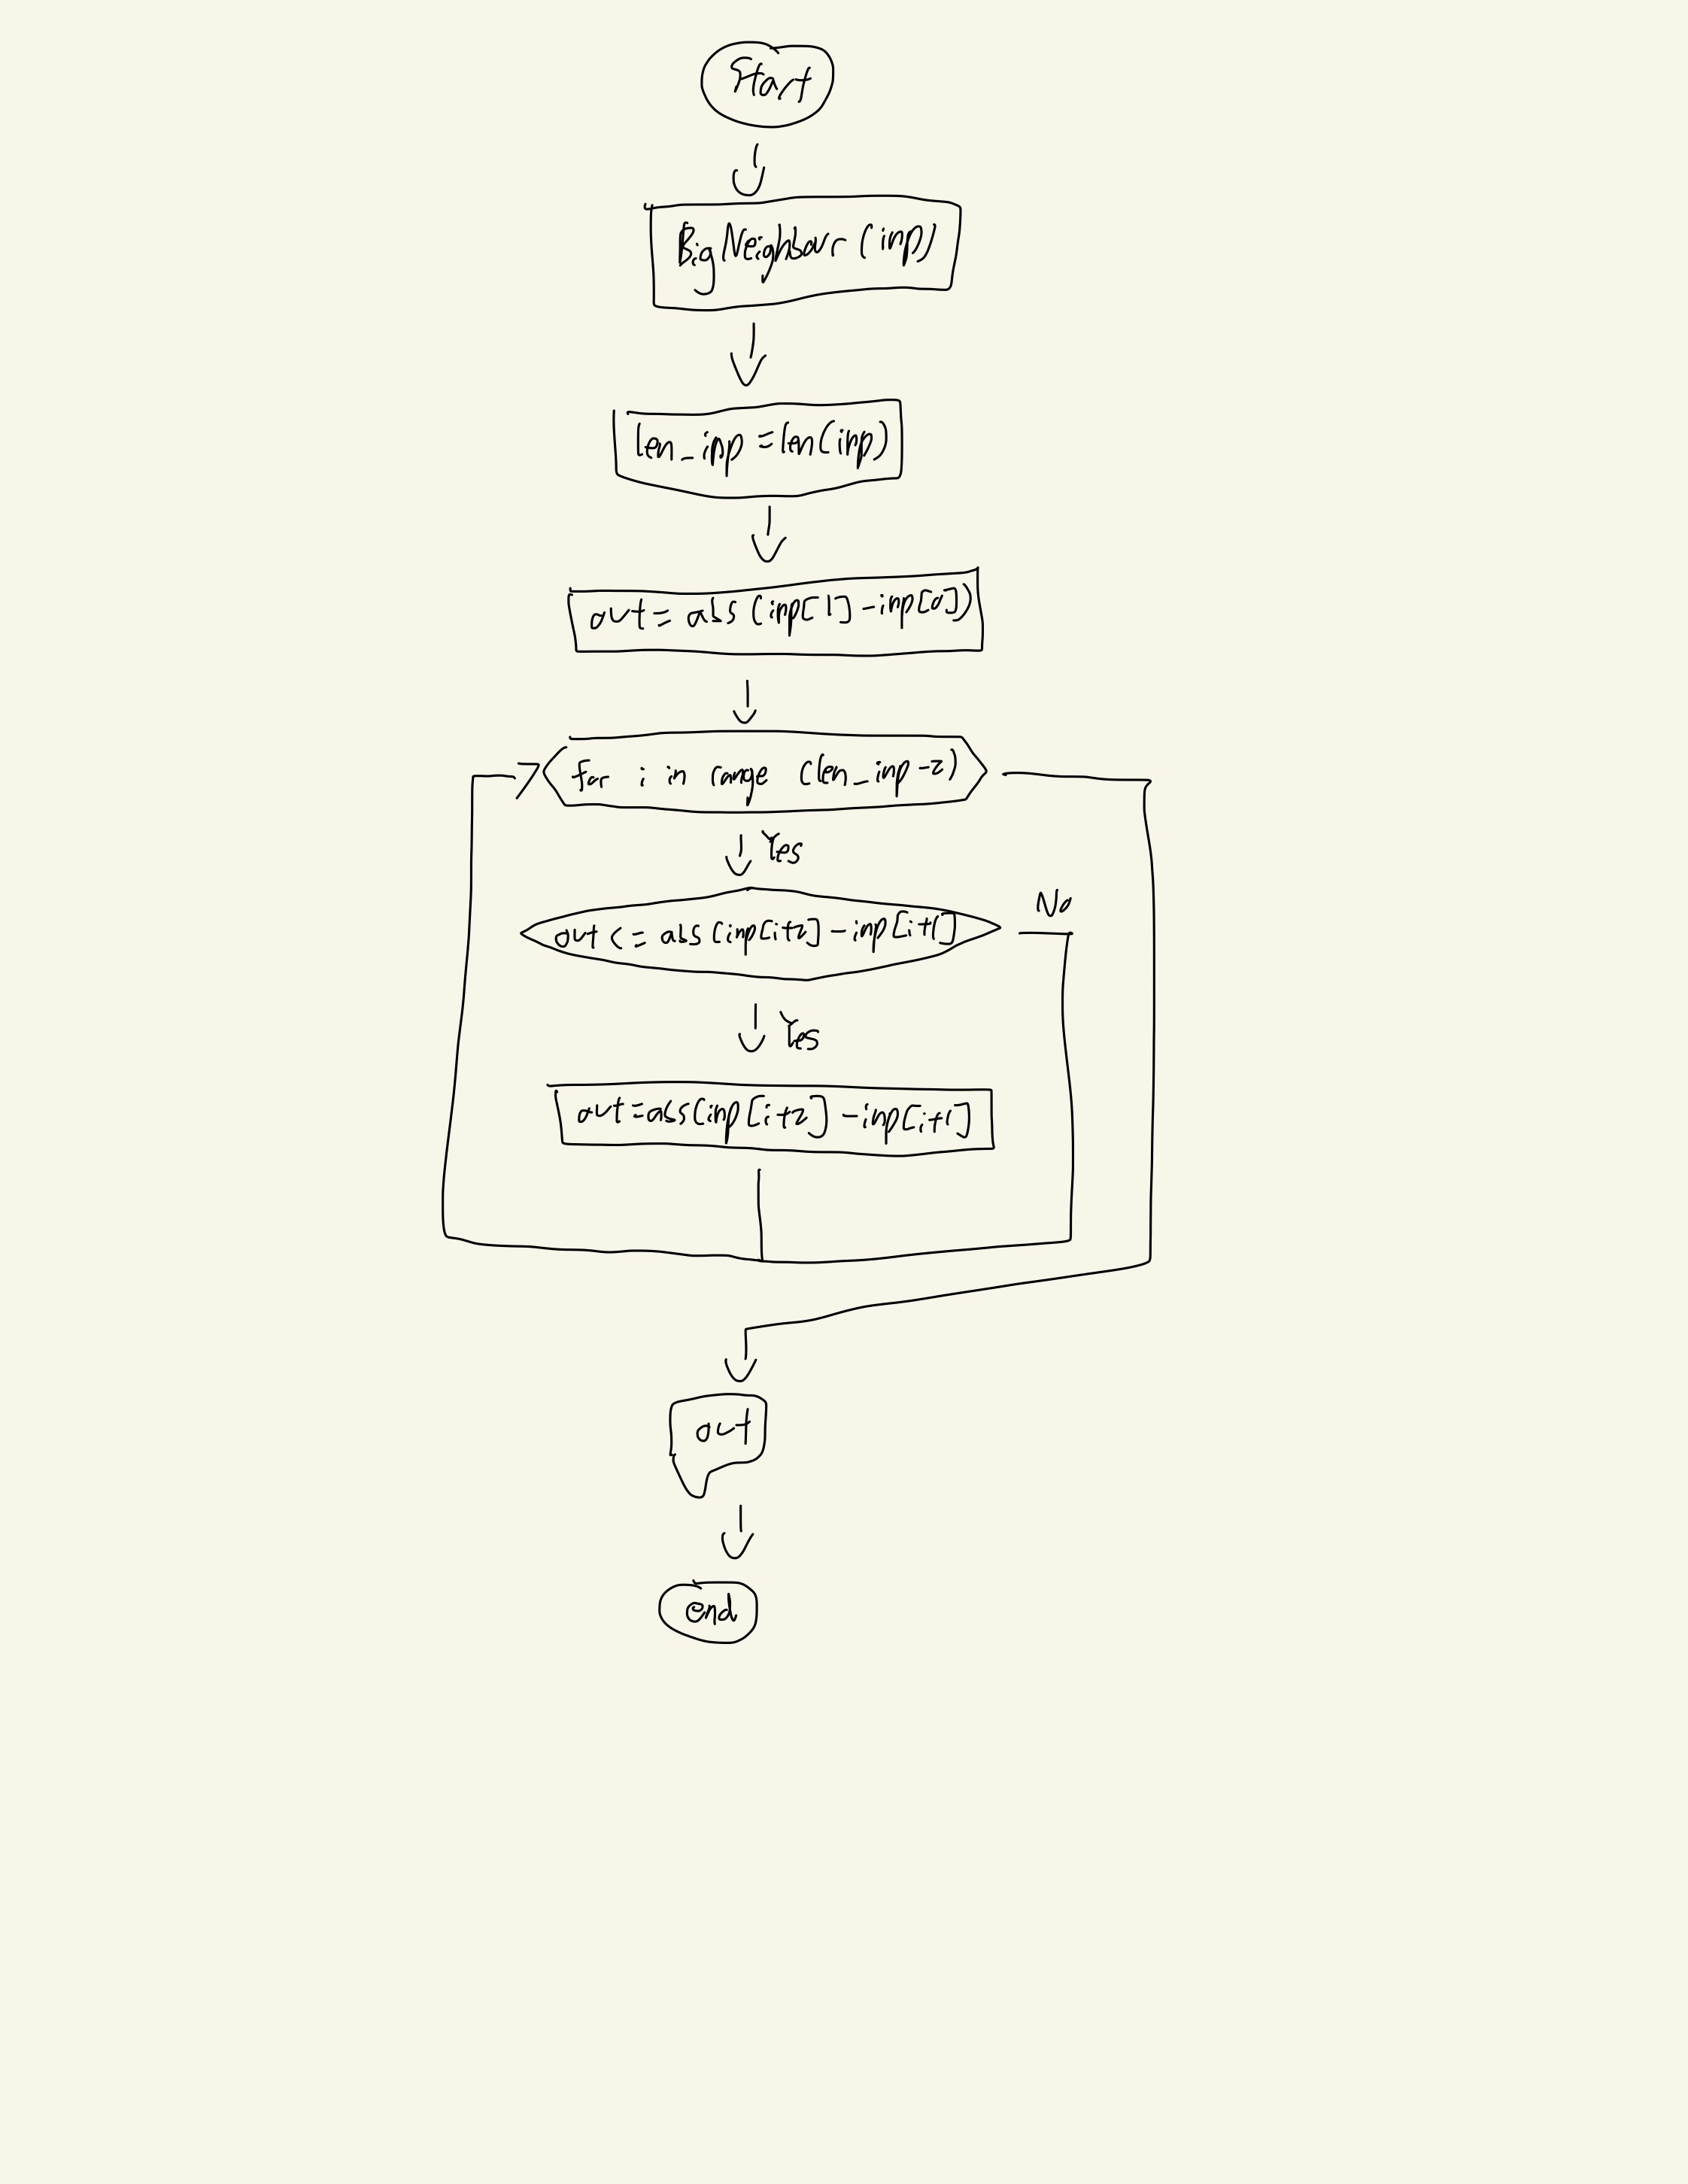 Start
BigNeighbour (inp)
len_inp = len(inp)
out = abs (inp[1] - inp[0])
for i in range (len_inp-2)
Yes
No
out <= abs (inp[i+2] - inp[i+1]
Yes
out=abs(inp[i+2] - inp[i+1]
out
end